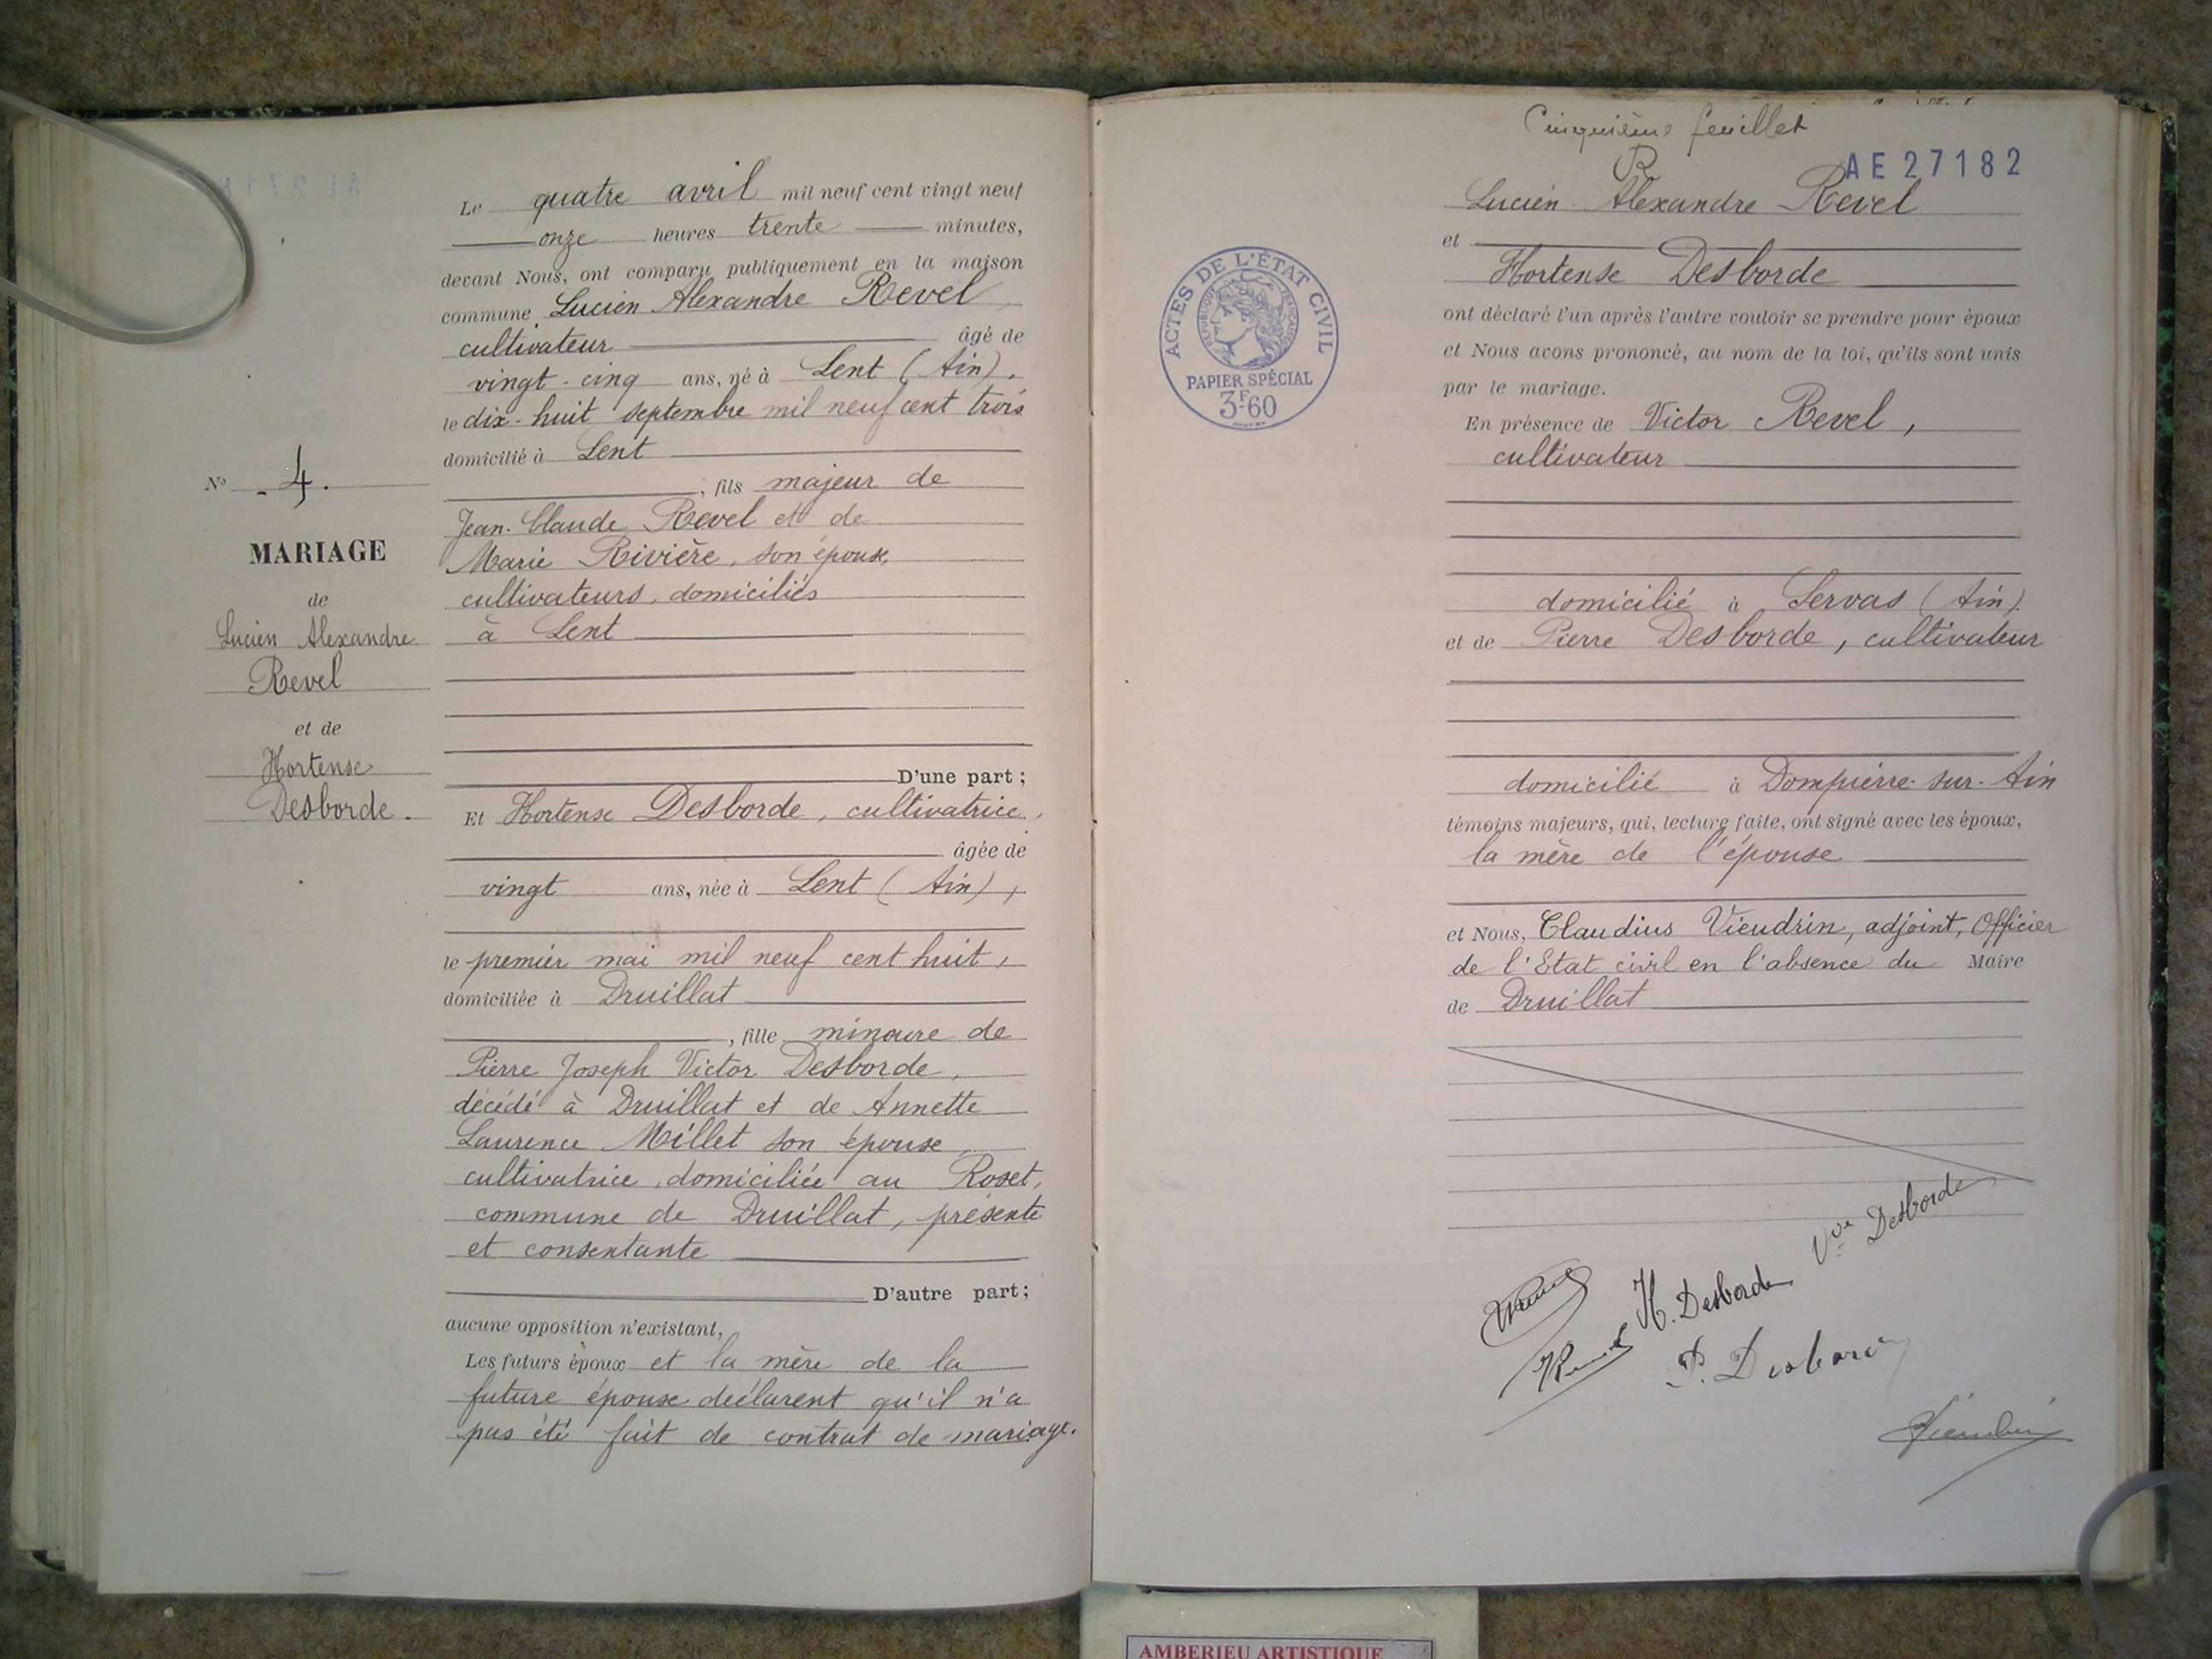 Le quatre avril mil neuf cent vingt neuf
onze heures trente minutes,
devant Nous, ont comparu publiquement en la maison
commune Lucien Alexandre Revel
cultivateur âgé de
vingt-cinq ans, né à Lent (Ain).
le dix-huit septembre mil neuf cent trois
domicilié à Lent
, fils majeur de
Jean-Claude Revel et de
Marie Rivière, son épouse,
cultivateurs, domiciliés
à Lent
D'une part ;
Et Hortense Desborde, cultivatrice,
âgée de
vingt ans, née à Lent (Ain),
le premier mai mil neuf cent huit,
domiciliée à Druillat
, fille mineure de
Pierre Joseph Victor Desborde,
décédé à Druillat et de Annette
Laurence Millet son épouse,
cultivatrice, domiciliée au Roset,
commune de Druillat, présente
et consentante
D'autre part ;
aucune opposition n'existant,
Les futurs époux et la mère de la
future épouse déclarent qu'il n'a
pas été fait de contrat de mariage.
No 4.
MARIAGE
de
Lucien Alexandre
Revel
et de
Hortense
Desborde.
Cinquième feuillet
R
AE 27182
Lucien Alexandre Revel
et
Hortense Desborde
ont déclaré l'un après l'autre vouloir se prendre pour époux
et Nous avons prononcé, au nom de la loi, qu'ils sont unis
par le mariage.
En présence de Victor Revel,
cultivateur
domicilié à Servas (Ain).
et de Pierre Desborde, cultivateur
domicilié à Dompierre-sur-Ain
témoins majeurs, qui, lecture faite, ont signé avec les époux,
la mère de l'épouse
et Nous, Claudius Vieudrin, adjoint, Officier
de l'Etat civil en l'absence du Maire
de Druillat
ACTES DE L'ÉTAT CIVIL
RÉPUBLIQUE FRANÇAISE
PAPIER SPÉCIAL
3F60
Vve Desborde
H. Desborde
Revel
P. Desborde
Vieudrin
AMBERIEU ARTISTIQUE